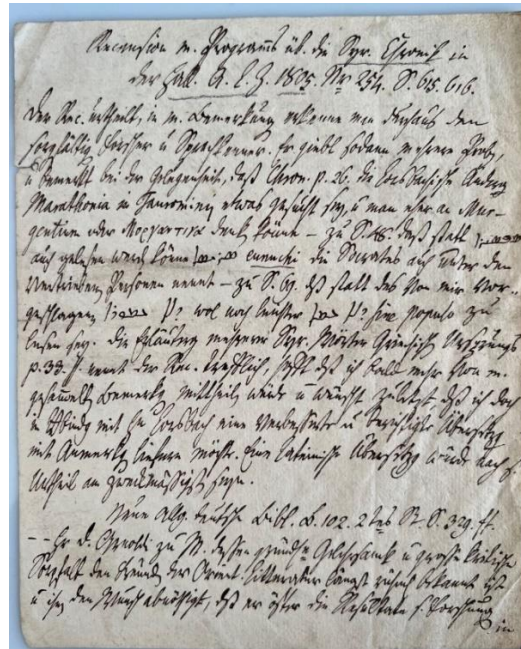 Recension m. Programms üb. die Syr. Chronik in
der Hall. A. L. Z. 1805. Nr 254. S. 615. 616.
Der Rec. urtheilt, in m. Bemerkung erkenne man durchaus den
sorgfältig Forscher u Sprachkenner. Er giebt sodann mehrere Proben,
u bemerkt bei der Gelegenheit, daß Chron. p. 26. die
Marathonia in etwas gesucht sey, u man eher an Mur-
gentium oder Μοργαντινα denken könne – zu S. 48. daß statt
auch gelesen werden könne eunuchi die Socrates auch unter den
vertriebenen Personen nennt – zu S. 69. daß statt des von mir vor-
geschlagenen wol noch sine populo zu
lesen sey. Die Erläuterung mehrerer Syr. Wörter Griechisch Ursprungs
p. 33. nennt der Rec. trefflich, hofft daß ich bald mehr von m.
gesammelt Bemerkg mittheilen würde u wünscht zuletzt daß ich doch
in Verbindg mit H. Lorsbach eine verbesserte u berichtigte Übersetzg
mit Anmerkg liefern möchte. Eine lateinische Übersetzg würde nach s.
Urtheil am zweckmässigst seyn.
Neue allg. deutsche Bibl. B. 102. 2tes St. S. 329. ff.
– – Hr D. Arnoldi zu M. dessen gründl. Gelehrsamk u grosse
Sorgfalt den Freunden der Orient. Litteratur längst rühml. bekannt ist
u ihn den Wunsch abnöthigt, daß er öfter die Resultate s. Forschung
in